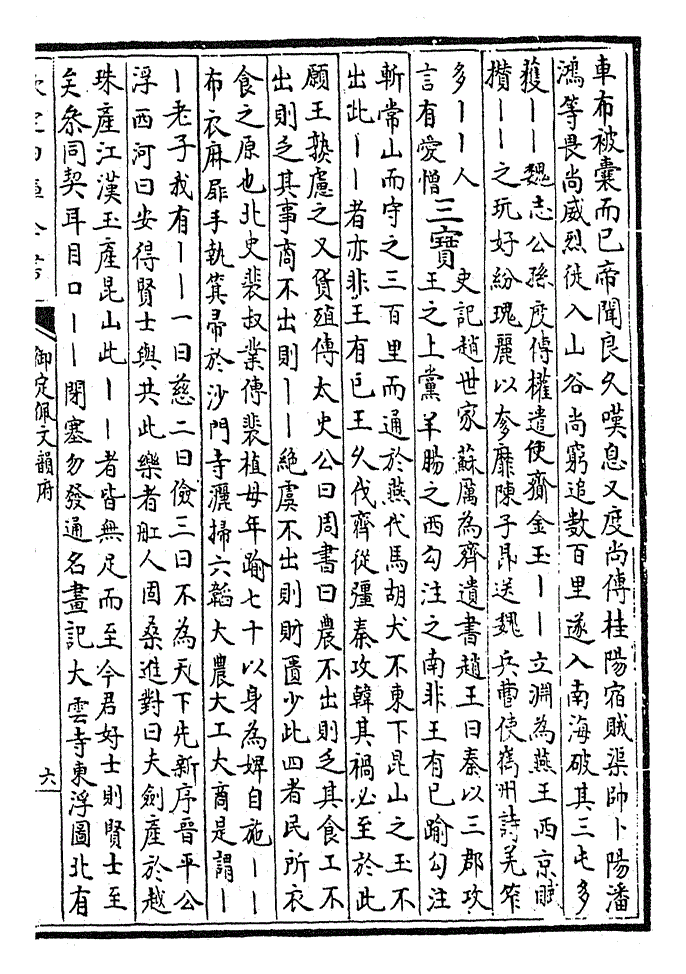 車布被囊而已帝聞良久嘆息又度尚傳桂陽宿賊渠帥卜陽潘
鴻等畏尚威烈徙入山谷尚窮追數百里遂入南海破其三屯多
獲——魏志公孫度傳權遣使齎金玉——立淵為燕王西京賦
攢——之玩好紛瑰麗以奓靡陳子昂送魏兵曹使巂州詩羌笮
多——人
言有愛憎
三寳
史記趙世家蘇厲為齊遺書趙王曰秦以三郡攻
王之上黨羊腸之西勾注之南非王有已踰勾注
斬常山而守之三百里而通於燕代馬胡犬不東下昆山之玉不
出此——者亦非王有已王久伐齊從彊秦攻韓其禍必至於此
願王孰慮之又貨殖傳太史公曰周書曰農不出則乏其食工不
出則乏其事商不出則——絶虞不出則財匱少此四者民所衣
食之原也北史裴叔業傳裴植母年踰七十以身為婢自施——
布衣麻屝手執箕帚於沙門寺灑掃六韜大農大工大商是謂—
—老子我有——一曰慈二曰儉三曰不為天下先新序晉平公
浮西河曰安得賢士與共此樂者舡人固桑進對曰夫劍產於越
珠產江漢玉產昆山此——者皆無足而至今君好士則賢士至
矣叅同契耳目口——閉塞勿發通名畫記大雲寺東浮圖北有
御定佩文韻府
六